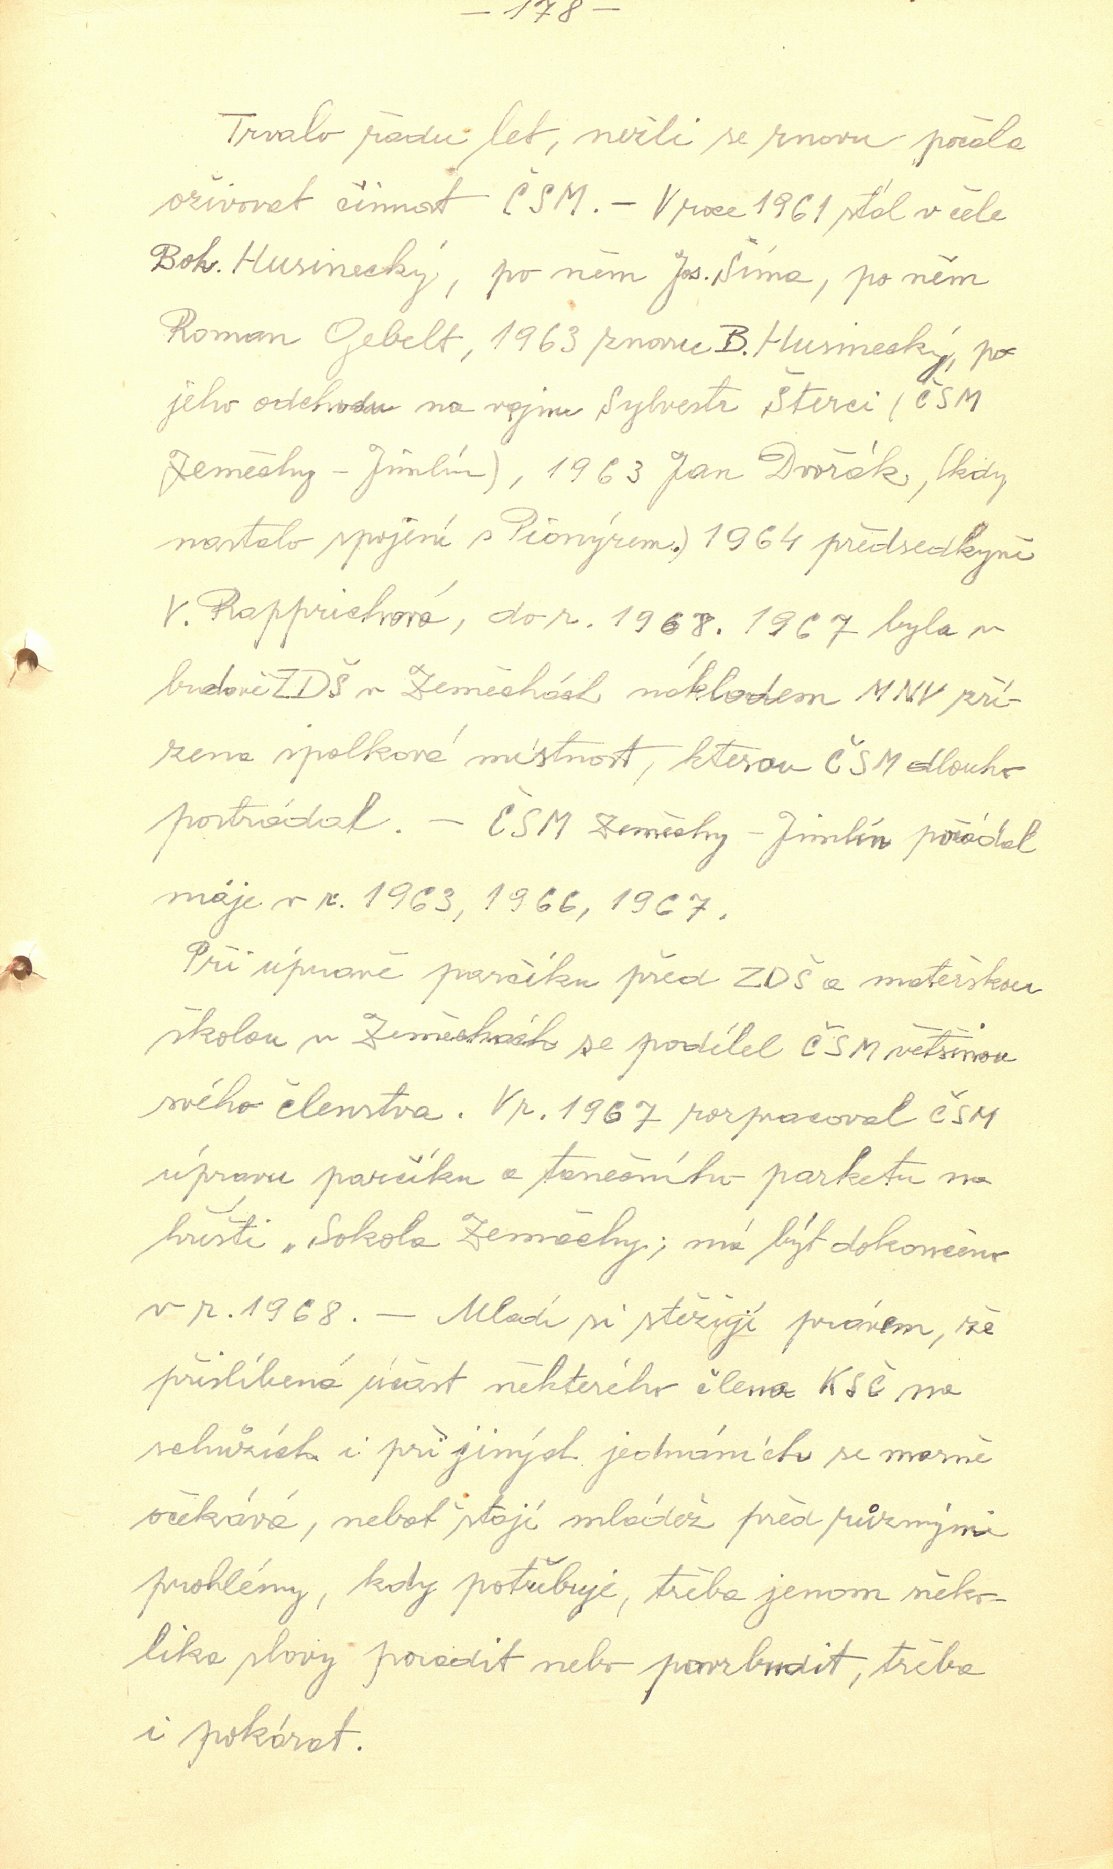 – 178 –
Trvalo řadu let, nežli se znovu počala
oživovat činnost ČSM. – V roce 1961 stál v čele
Boh. Husinecký, po něm Jos. Šíma, po něm
Roman Gebelt, 1963 znovu B. Husinecký, po
jeho odchodu na vojnu Sylvestr Šterci (ČSM
Zeměchy – Jimlín), 1963 Jan Dvořák, (kdy
nastalo spojení s Pionýrem.) 1964 předsedkyně
V. Rapprichová, do r. 1968. 1967 byla v
budově ZDŠ v Zeměchách nákladem MNV zří-
zena spolková místnost, kterou ČSM dlouho
postrádal. – ČSM Zeměchy – Jimlín pořádal
máje v r. 1963, 1966, 1967.
Při úpravě parčíku před ZDŠ a mateřskou
školou v Zeměchách se podílel ČSM většinou
svého členstva. V r. 1967 rozpracoval ČSM
úpravu parčíku a tanečního parketu na
hřišti „Sokola Zeměchy; má být dokončeno
v r. 1968. – Mladí si stěžují právem, že
přislíbená účast některého člena KSČ na
schůzích i při jiných jednáních se marně
očekává, neboť stojí mládež před různými
problémy, kdy potřebuje, třeba jenom něko-
lika slovy poradit nebo povzbudit, třeba
i pokárat.